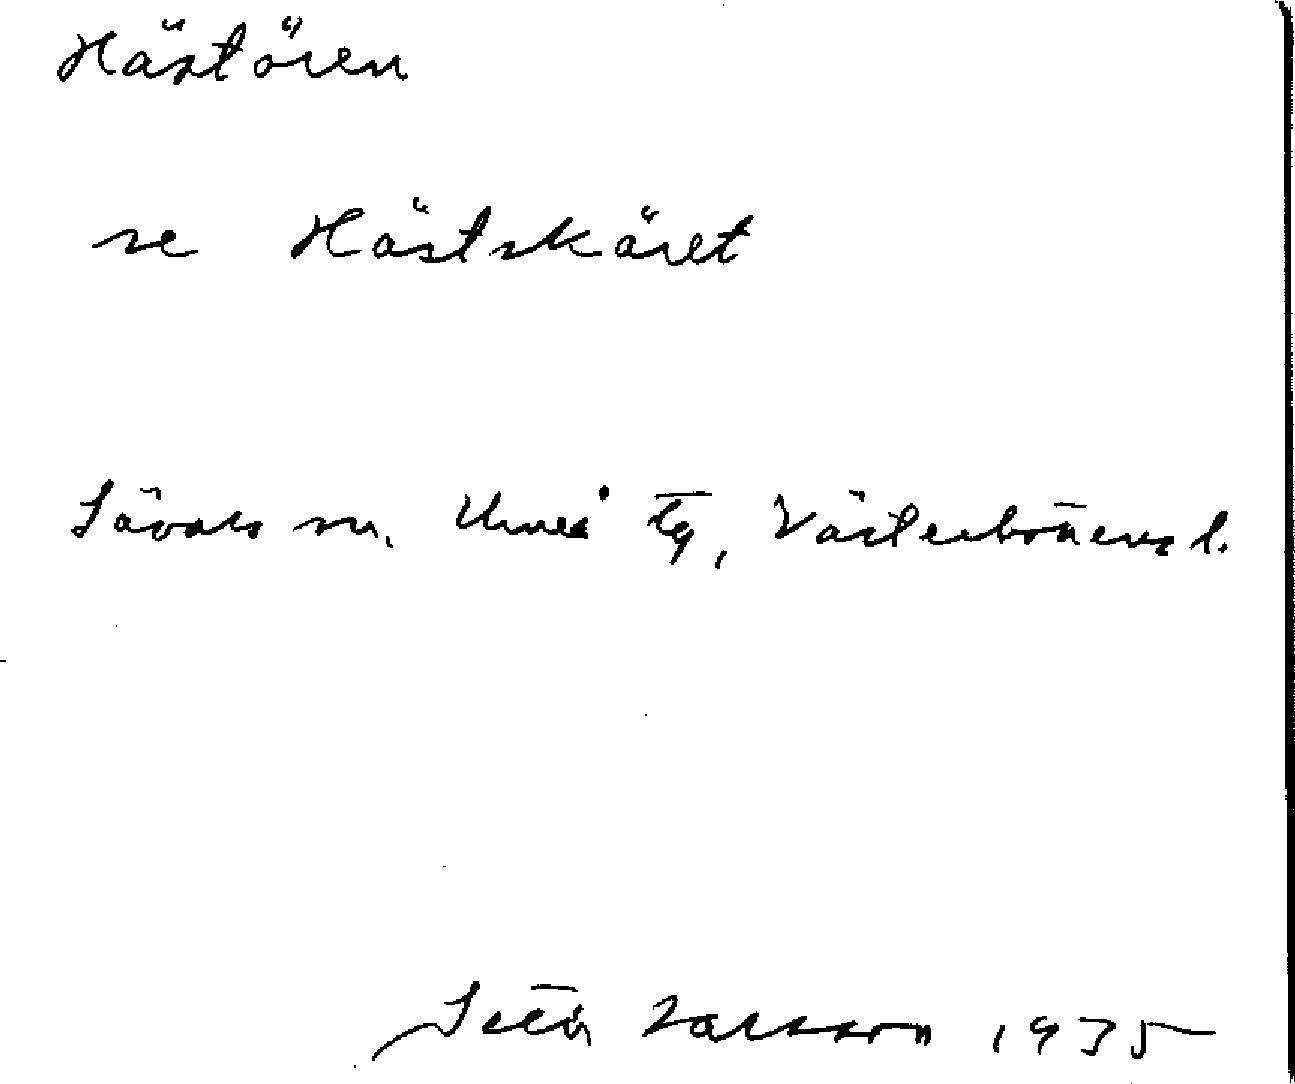 Hästören
se Hästskäret
Sävars sn. Umeå tg, Västerbottens l.
Seth Larsson 1935